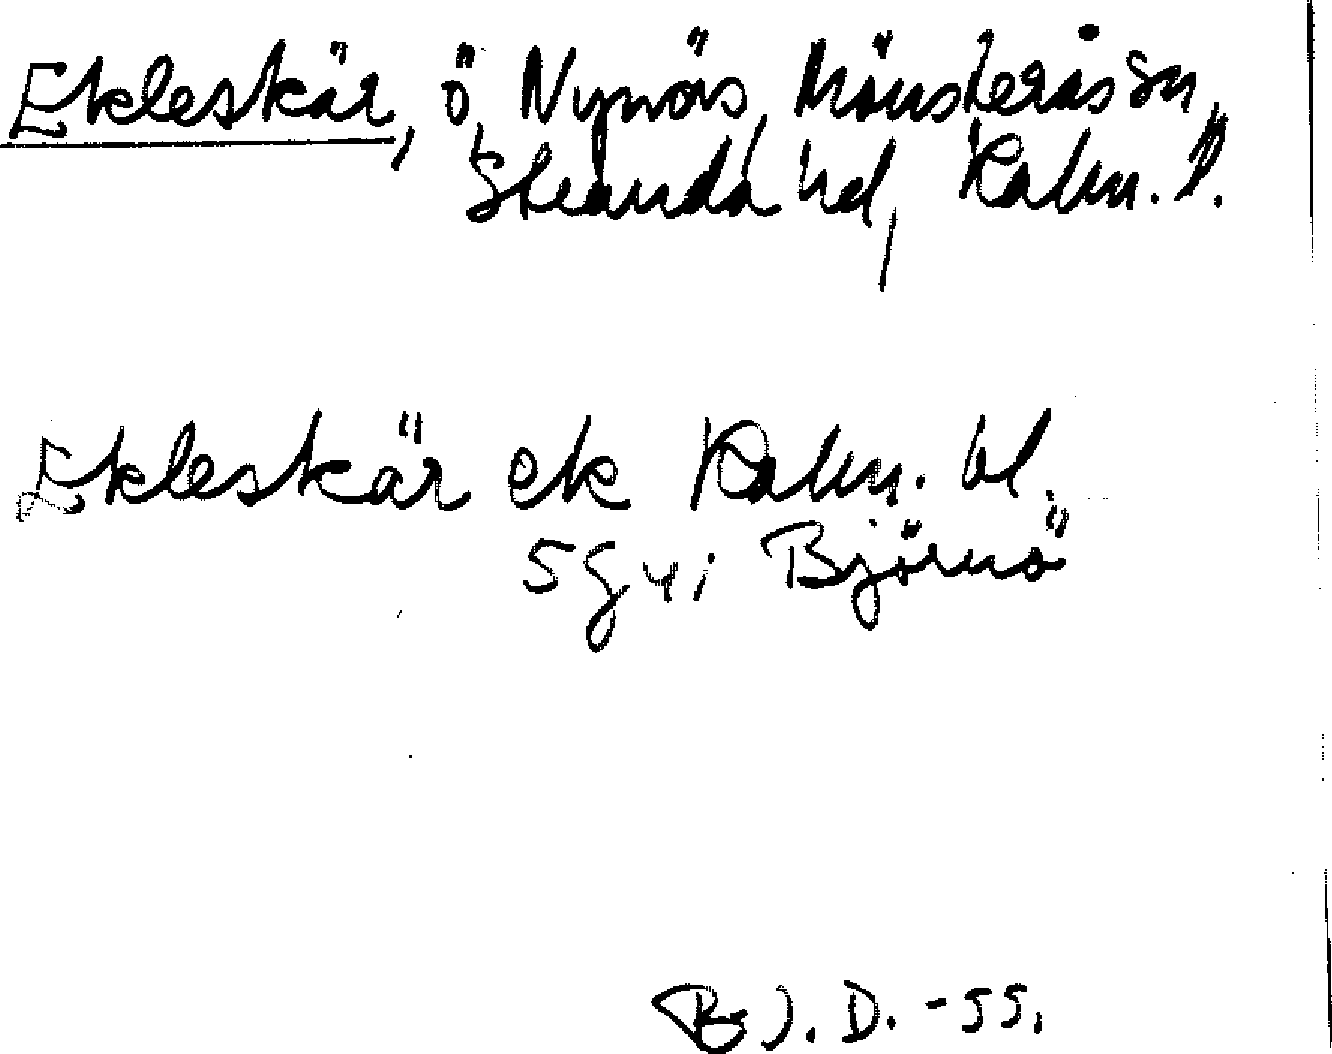 Ekleskär, ö, Nynäs, Mönsterås sn,
Stranda hd, Kalm. l.
Ekleskär ek Kalm. bl.
5 g y i Björnö
B J. D. -55.